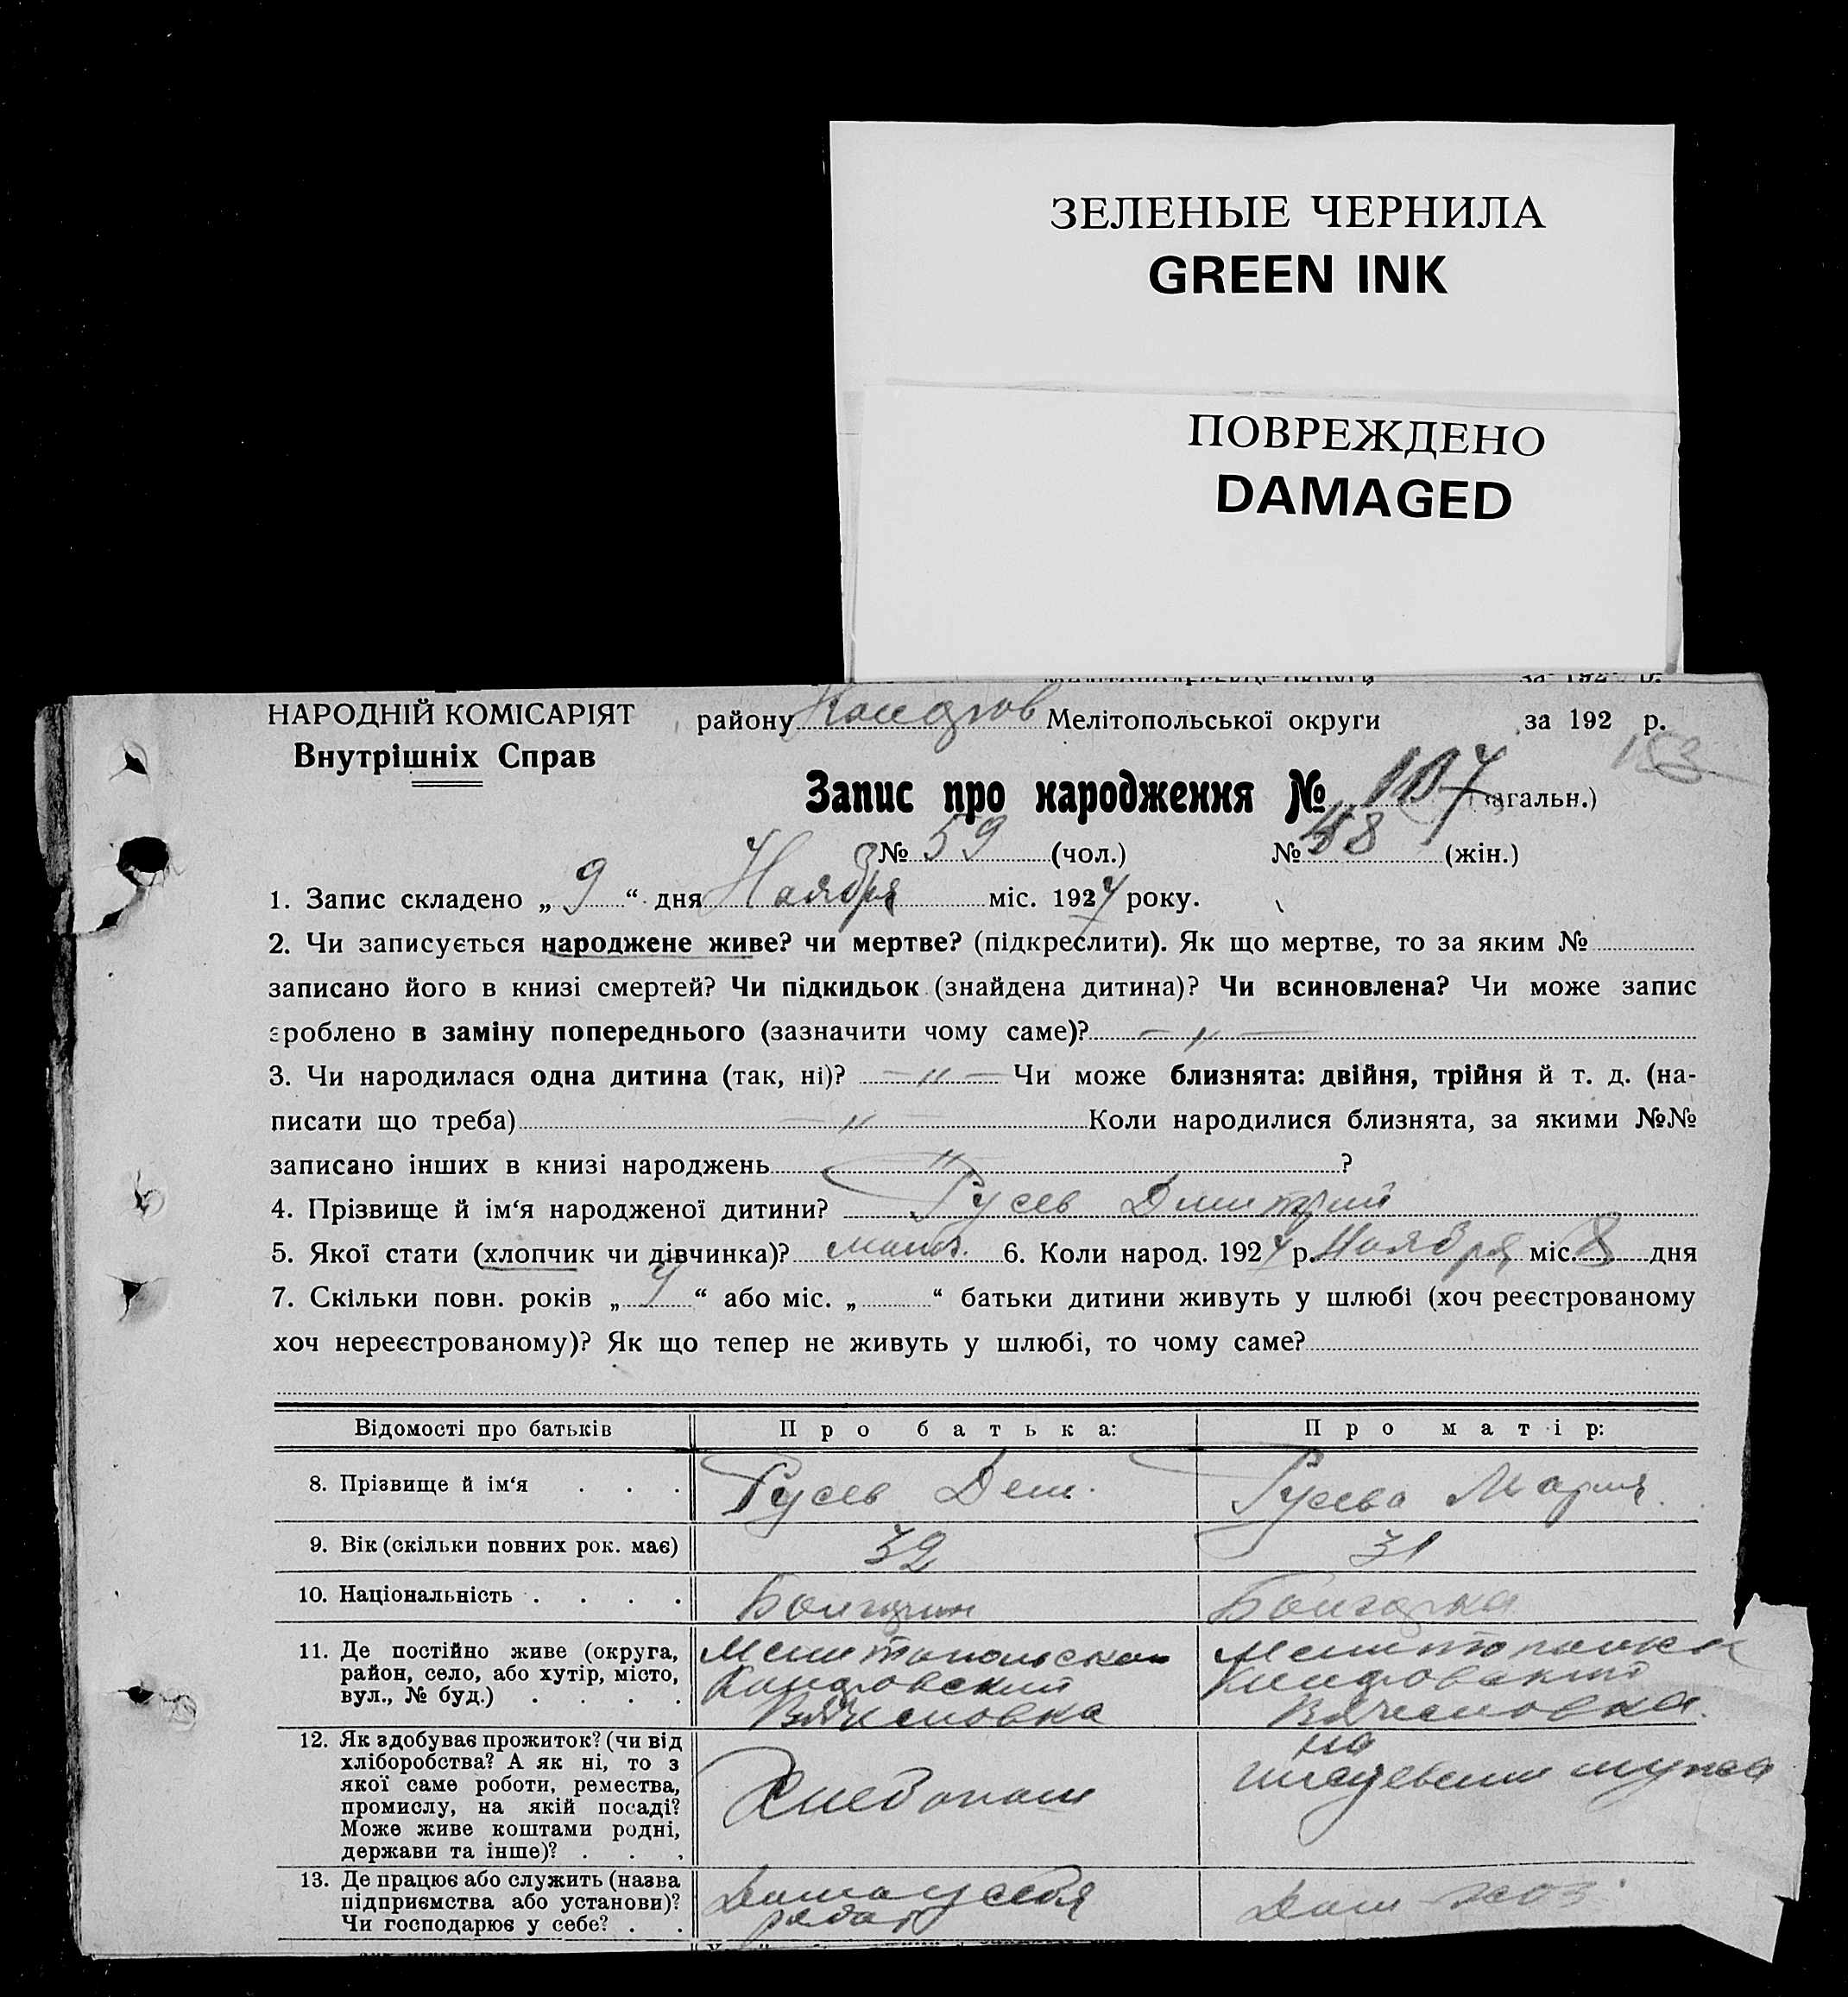 ЗЕЛЕНЫЕ ЧЕРНИЛА
GREEN INK
ПОВРЕЖДЕНО
DAMAGED
НАРОДНІЙ КОМІСАРІЯТ району Мелітопольської округи за 192 р.
Внутрішніх Справ
153
Запис про народження № 107 (загальн.)
№ 59 (чол.) № 48 (жін.)
1. Запис складено „ 9 “ дня Ноября міс. 1927 року.
2. Чи записується народжене живе? чи мертве? (підкреслити). Як що мертве, то за яким №
записано його в книзі смертей? Чи підкидьок (знайдена дитина)? Чи всиновлена? Чи може запис
зроблено в заміну попереднього (зазначити чому саме)? — „ —
3. Чи народилася одна дитина (так, ні)? — „ — Чи може близнята: двійня, трійня й т. д. (на-
писати що треба) — „ — Коли народилися близнята, за якими №№
записано інших в книзі народжень „ ?
4. Прізвище й ім‘я народженої дитини? Гусев Дмитрий
5. Якої стати (хлопчик чи дівчинка)? 6. Коли народ. 1927 р. Ноября міс. 8 дня
7. Скільки повн. років „ “ або міс. „ “ батьки дитини живуть у шлюбі (хоч реєстрованому
хоч нереєстрованому)? Як що тепер не живуть у шлюбі, то чому саме?
Відомості про батьків Про батька: Про матір:
8. Прізвище й ім‘я . . . Гусев Дем. Гусева Мария
9. Вік (скільки повних рок. має) 32 31
10. Національність . . . . Болгарин Болгарка
11. Де постійно живе (округа,
район, село, або хутір, місто,
вул., № буд.) . . . .
Мелитопольская
Вячесловка
Вячесловка
12. Як здобуває прожиток? (чи від
хліборобства? А як ні, то з
якої саме роботи, ремества,
промислу, на якій посаді?
Може живе коштами родні,
держави та інше)? . . .
Хлебопаш
на
иждевении мужа
13. Де працює або служить (назва
підприємства або установи)?
Чи господарює у себе? . .
Дома у себя
работ
Дом хоз.